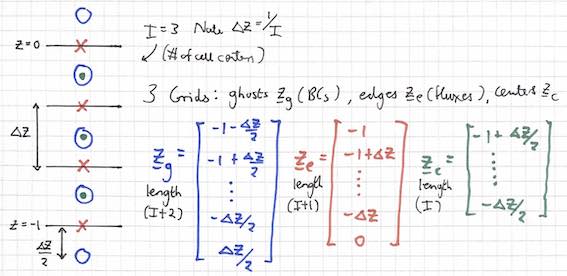 I=3 Note ΔZ=1/I
(# of cell centers)
Z=0
3 Grids: ghosts Z_g (BCs), edges Z_e (fluxes), centers Z_c
ΔZ
Z_g = [-1-ΔZ/2, -1+ΔZ/2, ⋮, -ΔZ/2, ΔZ/2]
length
(I+2)
Z_e = [-1, -1+ΔZ, ⋮, -ΔZ, 0]
length
(I+1)
Z_c = [-1+ΔZ/2, ⋮, -ΔZ/2]
length
(I)
Z=-1
ΔZ/2